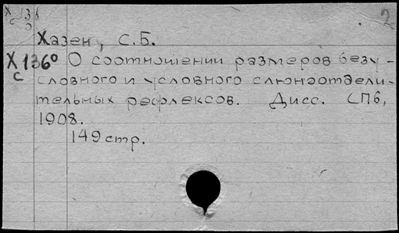 2
Хазен, С.Б.
X 136° О соотношении размеров безу-
с словного и условного слюноотдели-
тельных рефлексов. Дисс. СПб,
1908.
149 стр.